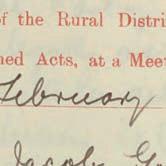 of the Rural Distri
ned Acts, at a Meet
February
Jacob G